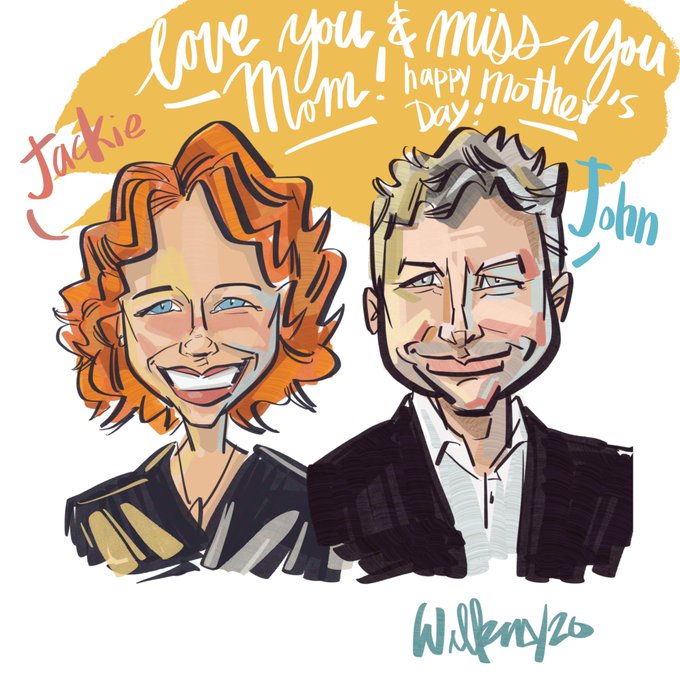 love you & miss you
Mom! happy Mother's
Day!
Jackie
John